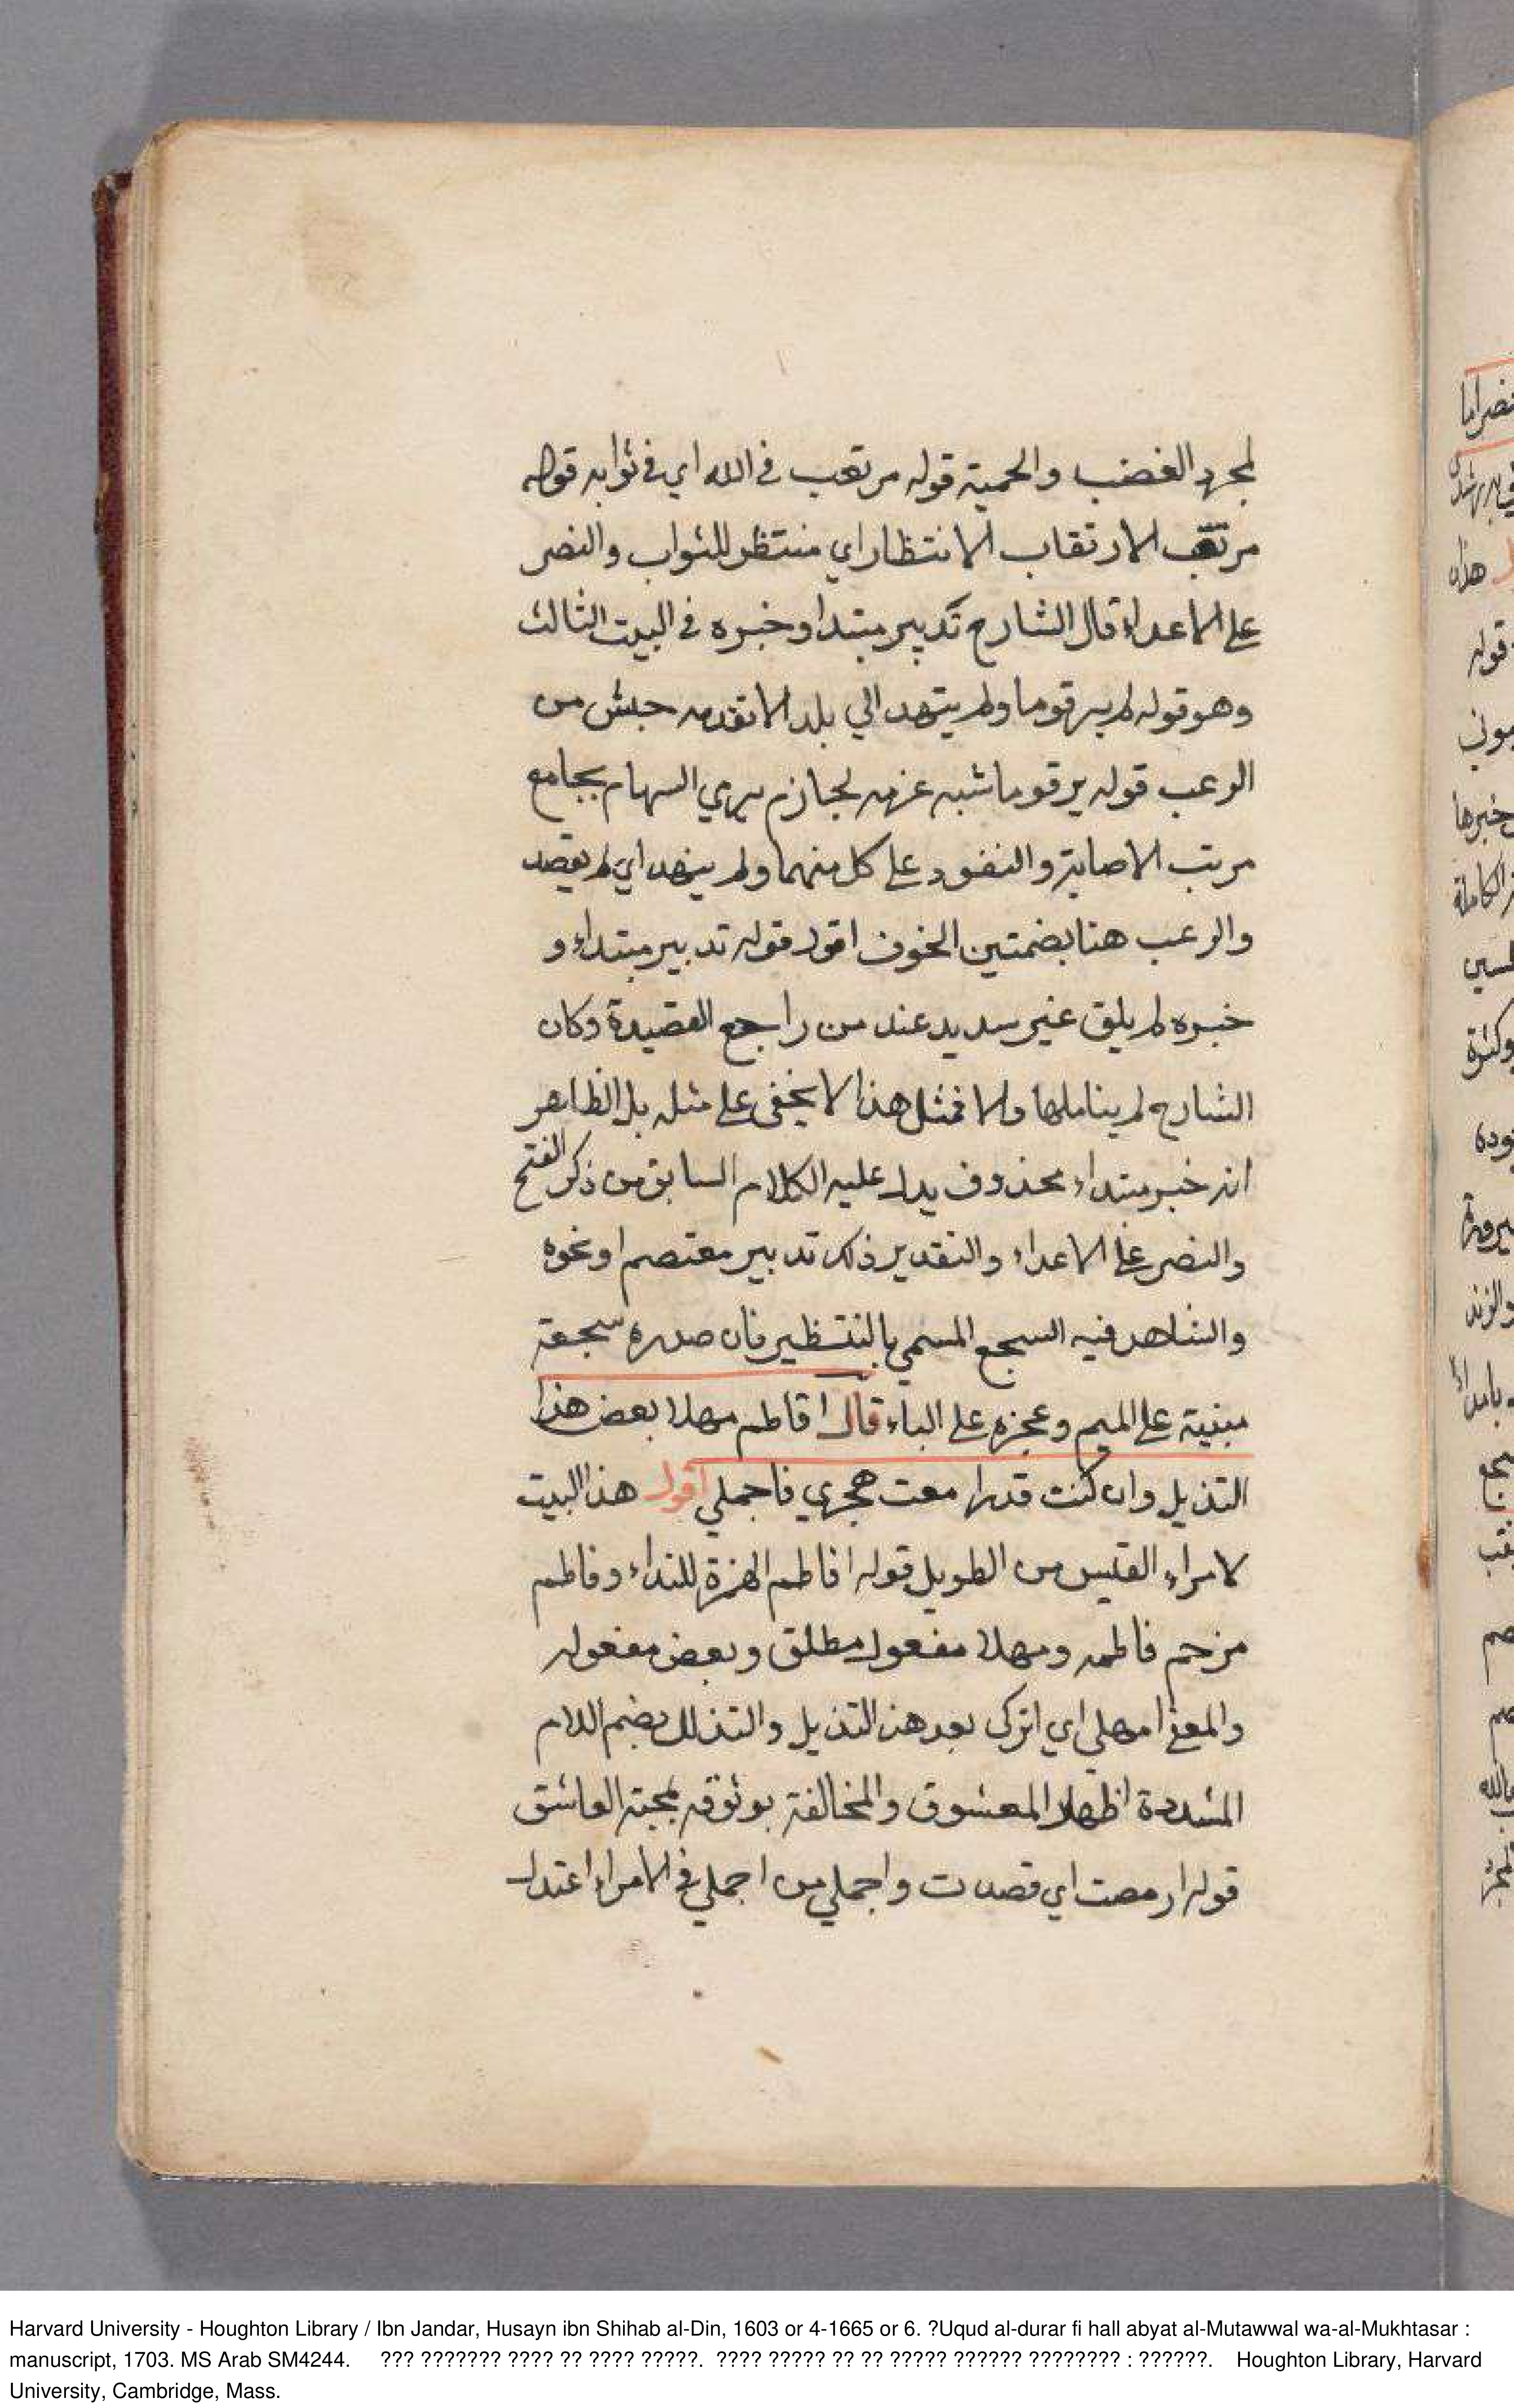 لمجرد الغضب والحمية قوله مرتقب في الله اي في ثوابه قوله
مرتقب الارتقاب الانتظار اي منتظر للثواب والنصر
على الاعداء قال الشارح تدبير مبتدا وخبره في البيت الثالث
وهو قوله لم يرم قوما ولم ينهد الي بلد الا تقدمه جيش من
الرعب قوله يرم قوما شبه عزمه يرمي السهام بجامع
مرتب الاصابة والنفوذ على كل منهما ولم ينهد اي لم يقصد
والرعب هنا بضمتين الخوف اقول قوله تدبير مبتداء و
خبره لم يلق غير سديد عند من راجع القصيدة وكان
الشارح لم يتاملها والا فمثل هذا لا يخفى على مثله بل الظاهر
انه خبر مبتداء محذوف يدل عليه الكلام السابق من ذكر الفتح
والنصر على الاعداء والتقدير ذلك تدبير معتصم او نحوه
والشاهد فيه السجع المسمي بالتنظير فان صدره سجعة
مبنية على الميم وعجزه على الباء قال افاطم مهلا بعض هذا
التذيل وان كنت قد ازمعت هجري فاجملي اقول هذا البيت
لامراء القيس من الطويل قوله افاطم الهمزة للنداء وفاطم
مرخم فاطمه ومهلا مفعول مطلق وبعض مفعوله
والمعنى امهلي اي اتركي بعد هذا التذيل والتذلل بضم اللام
المشددة اظهار المعشوق والمخالفة بوثوقه بمحبة العاشق
قوله ازمعت اي قصدت واجملي من اجملي في الامر اي اعتدل
Harvard University - Houghton Library / Ibn Jandar, Husayn ibn Shihab al-Din, 1603 or 4-1665 or 6. ?Uqud al-durar fi hall abyat al-Mutawwal wa-al-Mukhtasar :
manuscript, 1703. MS Arab SM4244. ??? ??????? ???? ?? ???? ?????. ???? ????? ?? ?? ????? ?????? ???????? : ??????. Houghton Library, Harvard
University, Cambridge, Mass.